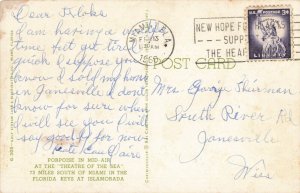 Dear Folks
I am having a wonderful
time, feet get tired
quick I suppose you
know I sold my home
in Janesville, I dont
know for sure when
I will see you I will
say goodby for now
Claire
PORPOISE IN MID-AIR
AT THE "THEATRE OF THE SEA"
73 MILES SOUTH OF MIAMI IN THE
FLORIDA KEYS AT ISLAMORADA
MIAMI, FLA.
NEW HOPE F
SUPP
THE HEAR
3¢
LIBERTY
POST CARD
Mrs. George Thurman
South River Rd
Janesville
Wis